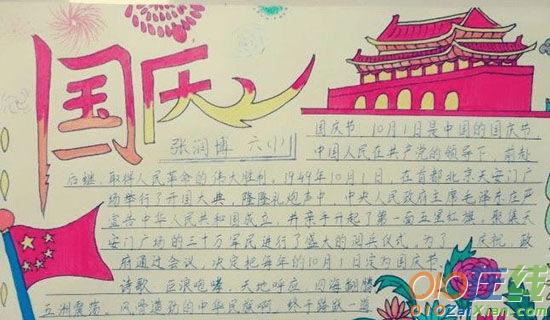 国庆
张润博 六(1)
国庆节 10月1日是中国的国庆节
中国人民在共产党的领导下,前赴
后继,取得人民革命的伟大胜利,1949年10月1日,在首都北京天安门广
场举行了开国大典,隆隆礼炮声中,中央人民政府主席毛泽东庄严
宣告中华人民共和国成立,并亲手升起了第一面五星红旗,聚集天
安门广场的三十万军民进行了盛大的阅兵仪式,为了 庆祝,政
府通过会议,决定把每年的10月1日定为国庆节
诗歌 巨浪咆哮,天地呼应,四海翻腾
五洲震荡,风雷激励的中华民族啊
在线
ZaiXian.com